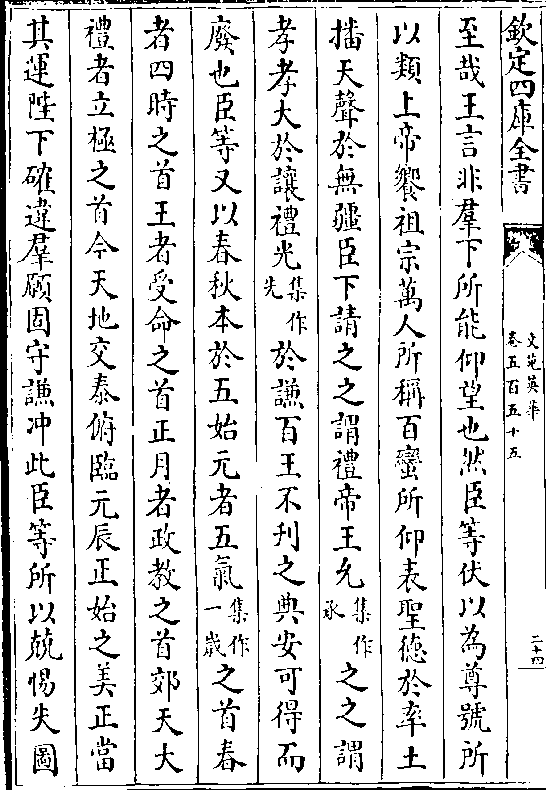 欽定四庫全書
文苑英華
卷五百五十五
二十四
至哉王言非羣下所能仰望也然臣等伏以為尊號所
以類上帝饗祖宗萬人所稱百蠻所仰表聖德於率土
播天聲於無疆臣下請之之謂禮帝王允集作承之之謂
孝孝大於讓禮光集作先於謙百王不刋之典安可得而
廢也臣等又以春秋本於五始元者五氣集作一歲之首春
者四時之首王者受命之首正月者政教之首郊天大
禮者立極之首今天地交泰俯臨元辰正始之美正當
其運陛下確違羣願固守謙冲此臣等所以兢惕失圖